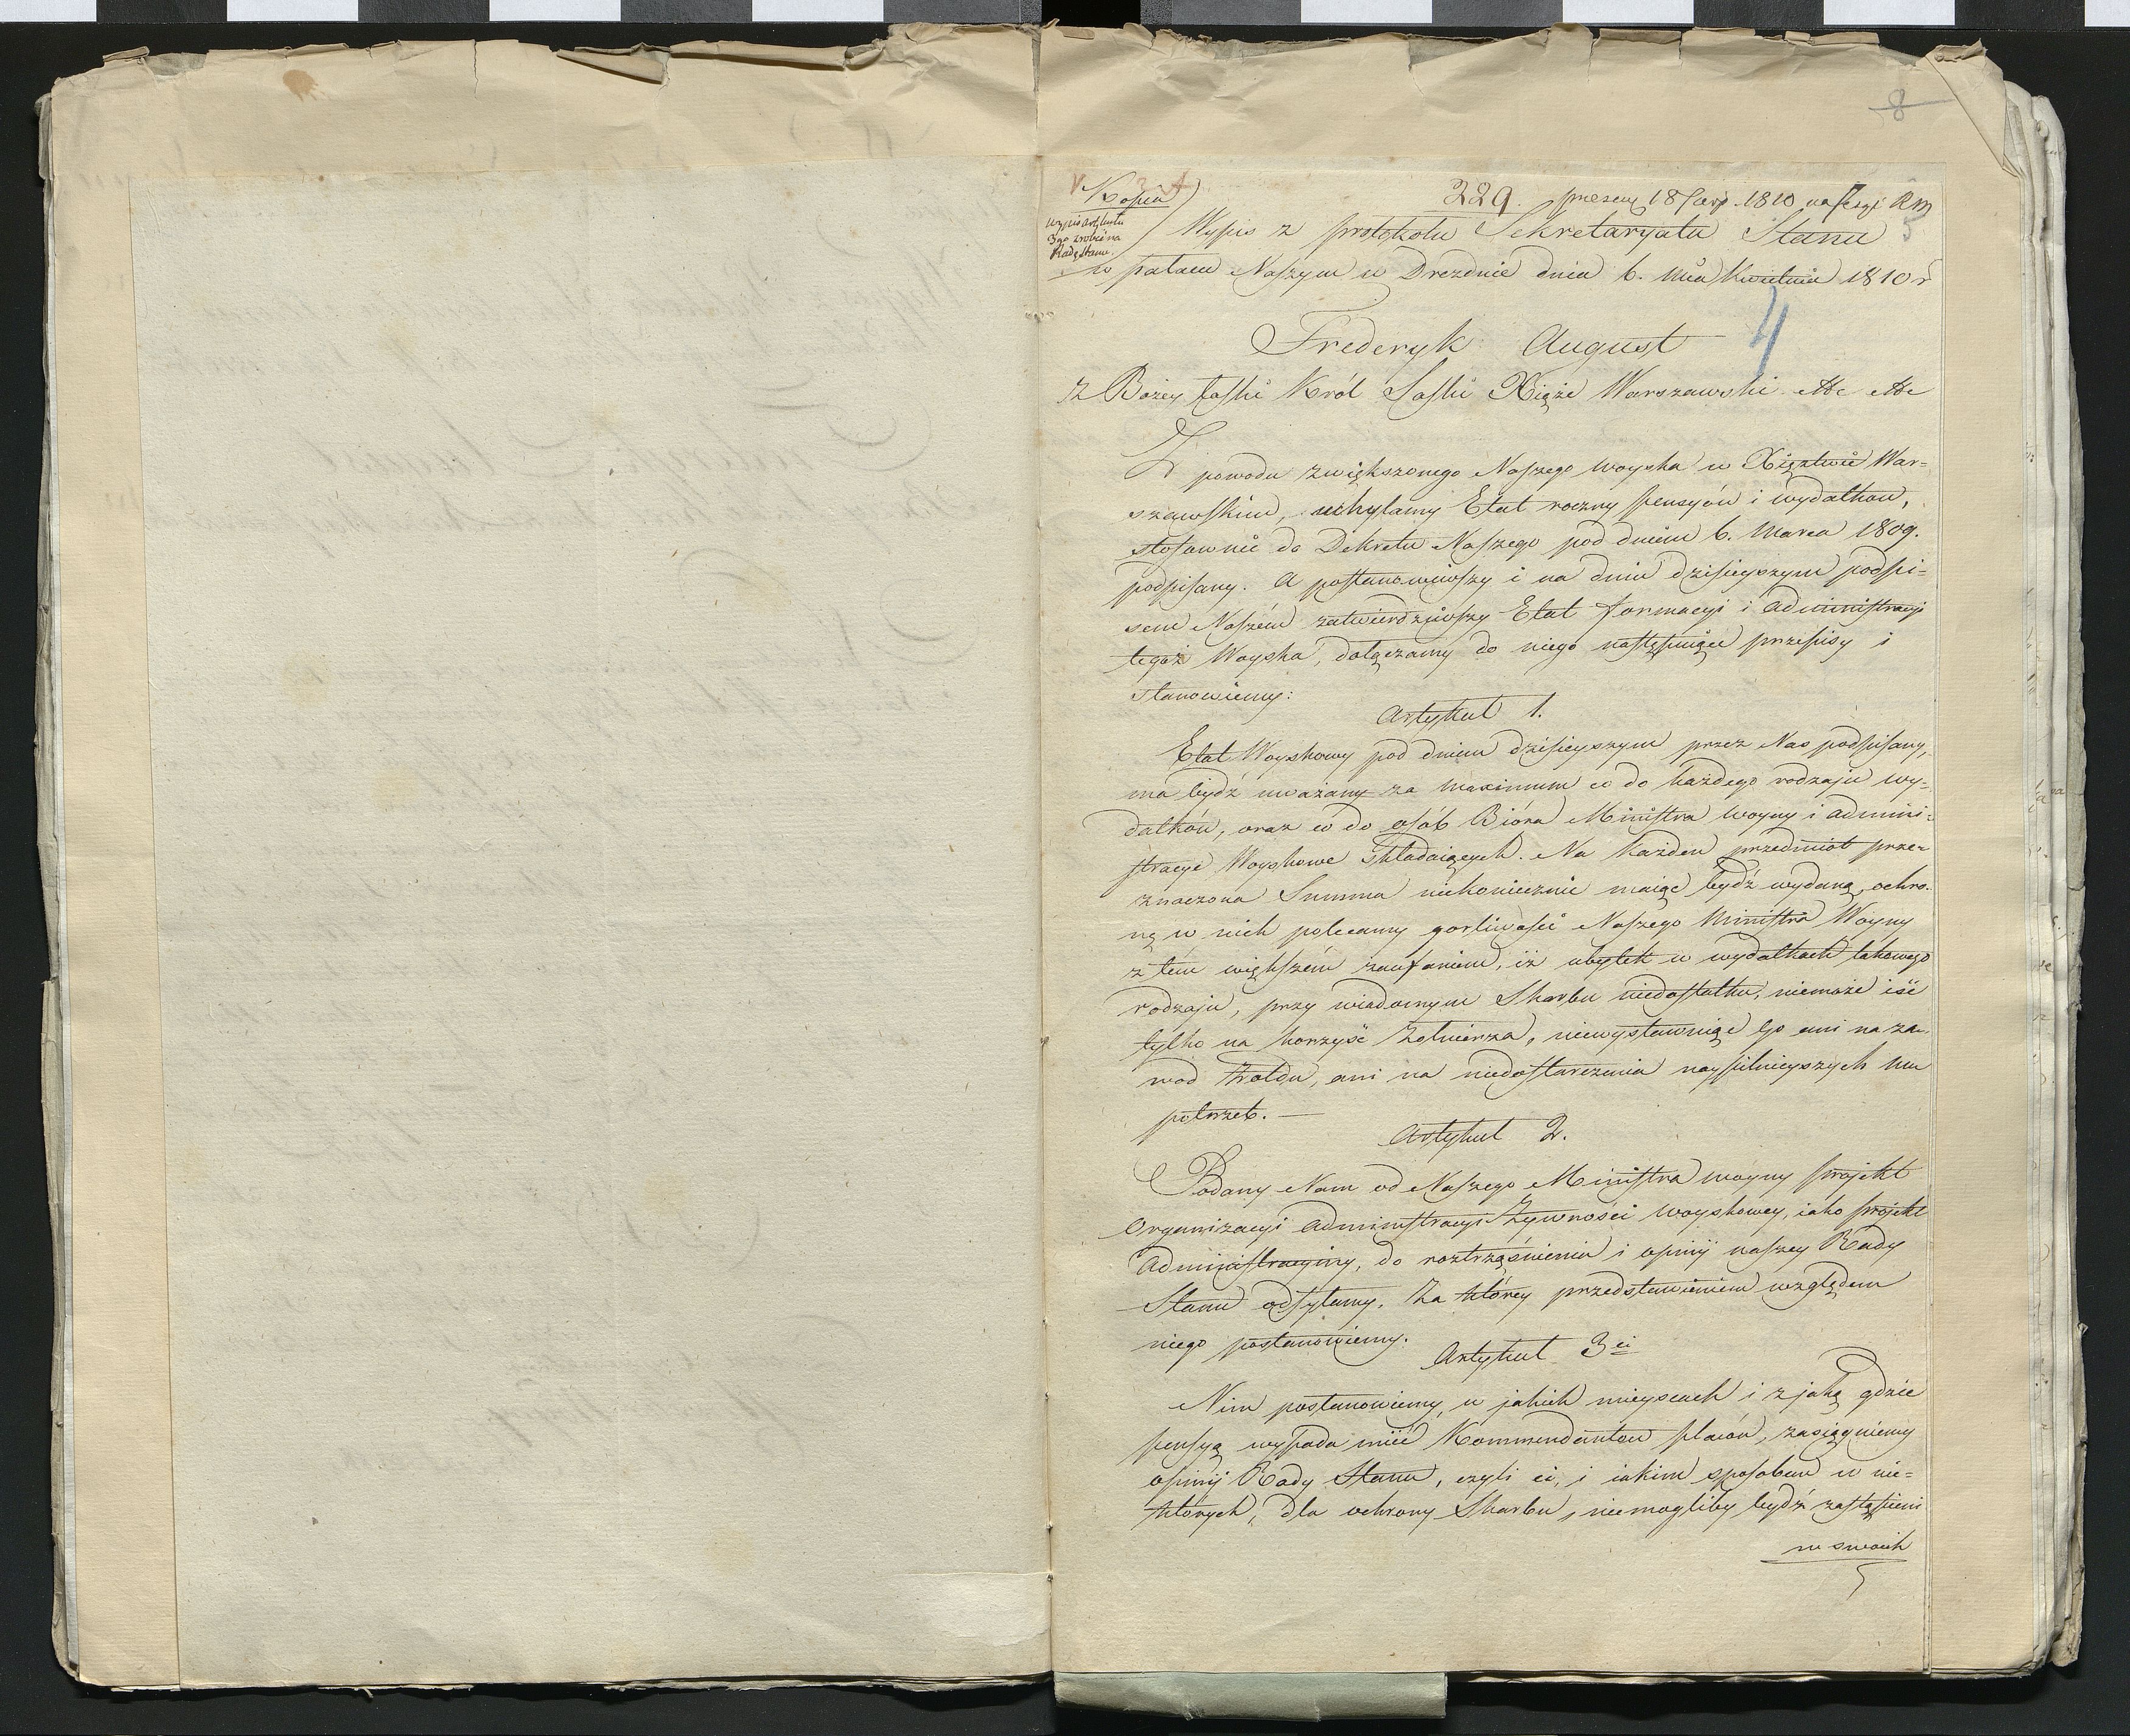 8
Kopia
229. 1810 na Sessyi R M
wypis artykułu
3go zrobić na
Radę Stanu.
Wypis z protokołu Sekretaryatu Stanu
5
w pałacu Naszym w Dreznie dnia 6. Mca Kwietnia 1810 r
4
Frederyk August
z Bożey łaski Król Saski Xiąże Warszawski etc etc
Z powodu zwiększonego Naszego woyska w Xięztwie War=
szawskim, uchylamy Etat roczny pensyów i wydatkow,
stosownie do Dekretu Naszego pod dniem 6. Marca 1809.
podpisany. A postanowiwszy i na dniu dzisieyszym podpi=
sem Naszém zatwierdziwszy Etat formacyi i administracyi
tegoż Woyska, dołączamy do niego następuiące przepisy i
stanowiemy:
Artykuł 1.
Etat Woyskowy pod dniem dzisieyszym przez Nas podpisany,
ma bydź uważany za maximum co do każdego rodzaju wy=
datków, oraz co do osób Bióra Ministra woyny i admini=
stracye Woyskowe składaiących. Na każden przedmiot prze=
znaczona Summa niekoniecznie maiąc bydź wydaną, ochro=
nę w nich polecamy gorliwości Naszego Ministra Woyny
z tem większém zaufaniem, iż ubytek w wydatkach takowego
rodzaju, przy wiadomym Skarbu niedostatku, niemoże iść
tylko na korzyść żołnierza, niewystawuiąc go ani na za=
wod żołdu, ani na niedostarczenia naysilnieyszych mu
potrzeb. —
Artykuł 2.
Podany Nam od Naszego Ministra woyny projekt
Organizacyi administracyi Żywności woyskowey, iako projekt
administracyiny, do roztrząśnienia i opinij naszey Rady
Stanu odsyłamy. Za którey przedstawieniem względem
niego postanowiemy.
Artykuł 3ci
Nim postanowiemy, w jakich mieyscach i z jaką gdzie
pensyą wypada mieć Kommendantow placów, zasiągniemy
opinij Rady Stanu, czyli ci, i iakim sposobem w nie=
których, dla ochrony Skarbu, niemogliby bydź zastąpieni
w swoich